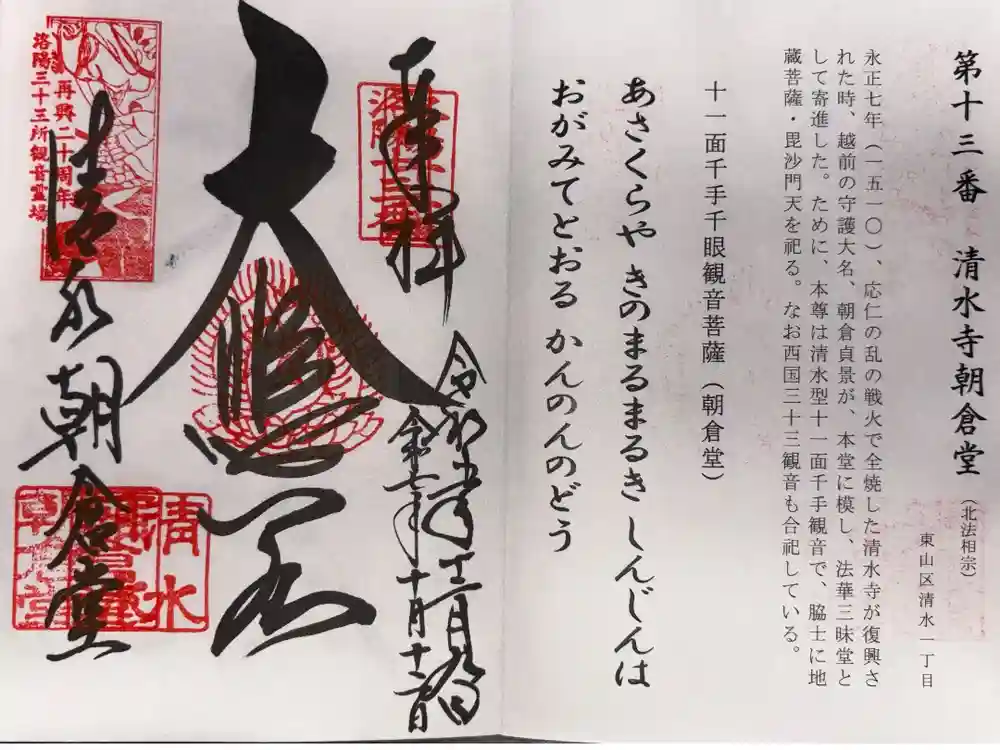 第十三番 清水寺朝倉堂（北法相宗）
東山区清水一丁目
永正七年（一五一〇）、応仁の乱の戦火で全焼した清水寺が復興さ
れた時、越前の守護大名、朝倉貞景が、本堂に模し、法華三昧堂と
して寄進した。ために、本尊は清水型十一面千手観音で、脇士に地
蔵菩薩・毘沙門天を祀る。なお西国三十三観音も合祀している。
十一面千手千眼観音菩薩（朝倉堂）
あさくらや きのまるまるき しんじんは
おがみてとおる かんのんのどう
奉拝
令和五年十二月九日
令和七年十月十二日
大悲閣
再興二十周年
洛陽三十三所観音霊場
清水
朝倉堂
清水